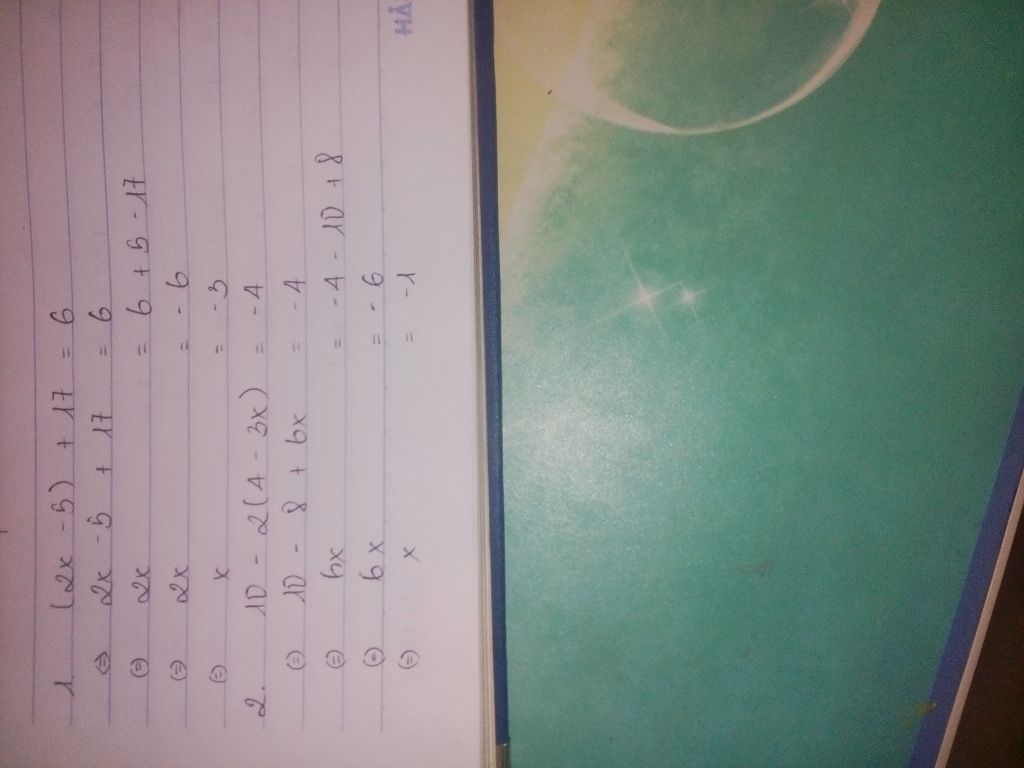 1. (2x - 5) + 17 = 6
(=) 2x - 5 + 17 = 6
(=) 2x = 6 + 5 - 17
(=) 2x = - 6
(=) x = -3
2. 10 - 2(4 - 3x) = -4
(=) 10 - 8 + 6x = -4
(=) 6x = -4 - 10 + 8
(=) 6x = - 6
(=) x = -1